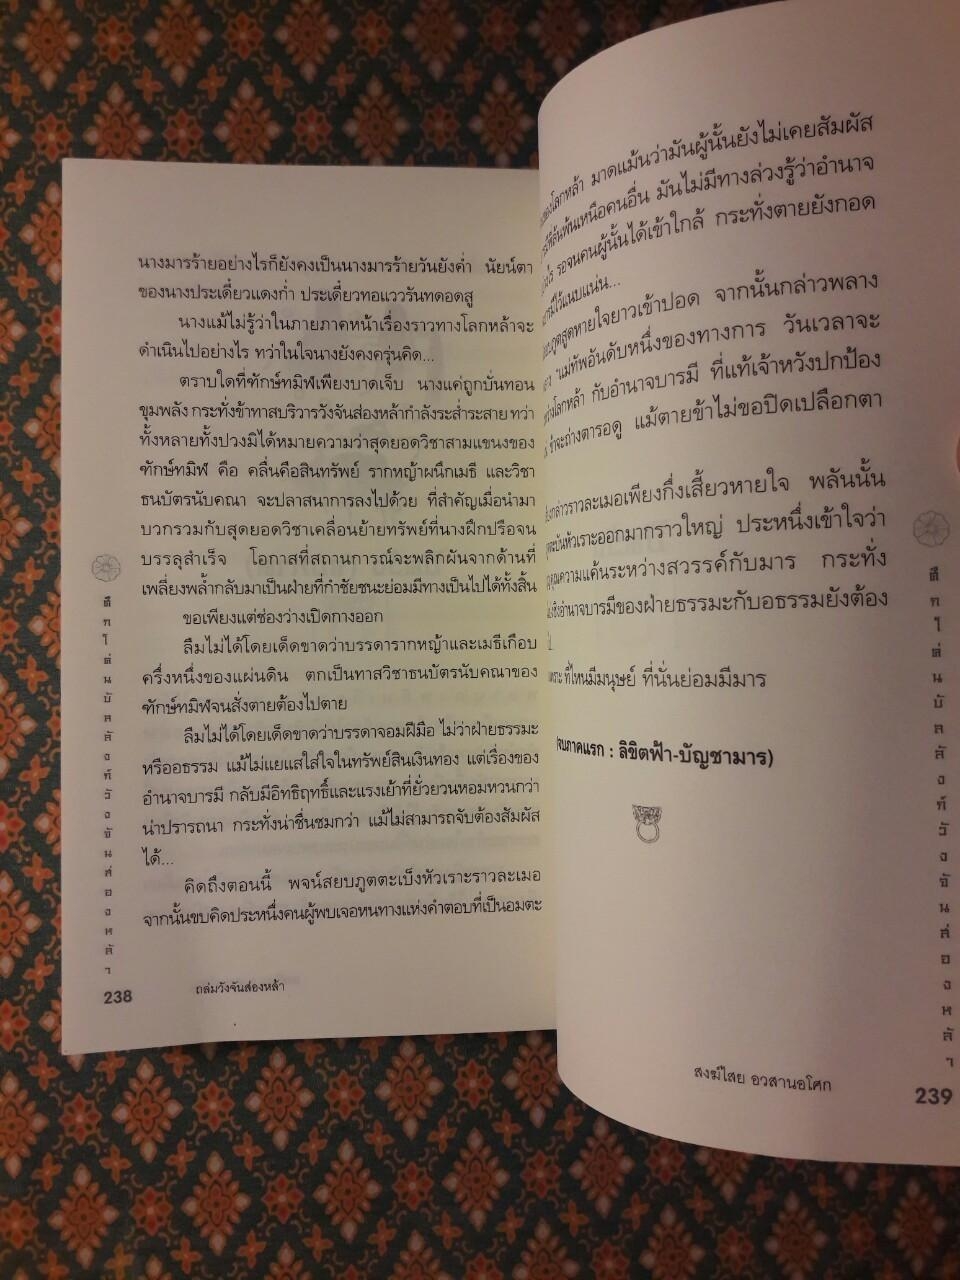 นางมารร้ายอย่างไรก็ยังคงเป็นนางมารร้ายวันยังค่ำ นัยน์ตา
ของนางประเดี๋ยวแดงก่ำ ประเดี๋ยวทอแววรันทดอดสู
นางแม้ไม่รู้ว่าในภายภาคหน้าเรื่องราวทางโลกหล้าจะ
ดำเนินไปอย่างไร ทว่าในใจนางยังคงครุ่นคิด...
ตราบใดที่ฑักษ์ทมิฬเพียงบาดเจ็บ นางแค่ถูกบั่นทอน
ขุมพลัง กระทั่งข้าทาสบริวารวังจันส่องหล้ากำลังระส่ำระสาย ทว่า
ทั้งหลายทั้งปวงมิได้หมายความว่าสุดยอดวิชาสามแขนงของ
ฑักษ์ทมิฬ คือ คลื่นคือสินทรัพย์ รากหญ้าผนึกเมธี และวิชา
ธนบัตรนับคณา จะปลาสนาการลงไปด้วย ที่สำคัญเมื่อนำมา
บวกรวมกับสุดยอดวิชาเคลื่อนย้ายทรัพย์ที่นางฝึกปรือจน
บรรลุสำเร็จ โอกาสที่สถานการณ์จะพลิกผันจากด้านที่
เพลี่ยงพล้ำกลับมาเป็นฝ่ายที่กำชัยชนะย่อมมีทางเป็นไปได้ทั้งสิ้น
ขอเพียงแต่ช่องว่างเปิดกางออก
ลืมไม่ได้โดยเด็ดขาดว่าบรรดารากหญ้าและเมธีเกือบ
ครึ่งหนึ่งของแผ่นดิน ตกเป็นทาสวิชาธนบัตรนับคณาของ
ฑักษ์ทมิฬจนสั่งตายต้องไปตาย
ลืมไม่ได้โดยเด็ดขาดว่าบรรดาจอมฝีมือ ไม่ว่าฝ่ายธรรมะ
หรืออธรรม แม้ไม่แยแสใส่ใจในทรัพย์สินเงินทอง แต่เรื่องของ
อำนาจบารมี กลับมีอิทธิฤทธิ์และแรงเย้าที่ยั่วยวนหอมหวนกว่า
น่าปรารถนา กระทั่งน่าชื่นชมกว่า แม้ไม่สามารถจับต้องสัมผัส
ได้...
คิดถึงตอนนี้ พจน์สยบภูตตะเบ็งหัวเราะราวละเมอ
จากนั้นขบคิดประหนึ่งคนผู้พบเจอหนทางแห่งคำตอบที่เป็นอมตะ
ศึกโค่นบัลลังก์วังจันส่องหล้า
238
ถล่มวังจันส่องหล้า
โลกหล้า มาดแม้นว่ามันผู้นั้นยังไม่เคยสัมผัส
ล้นพ้นเหนือคนอื่น มันไม่มีทางล่วงรู้ว่าอำนาจ
รอจนคนผู้นั้นได้เข้าใกล้ กระทั่งตายยังกอด
ไว้แนบแน่น...
สูดหายใจยาวเข้าปอด จากนั้นกล่าวพลาง
"แม่ทัพอันดับหนึ่งของทางการ วันเวลาจะ
โลกหล้า กับอำนาจบารมี ที่แท้เจ้าหวังปกป้อง
ข้าจะถ่างตารอดู แม้ตายข้าไม่ขอปิดเปลือกตา
กล่าวราวละเมอเพียงกึ่งเสี้ยวหายใจ พลันนั้น
หัวเราะออกมากราวใหญ่ ประหนึ่งเข้าใจว่า
ความแค้นระหว่างสวรรค์กับมาร กระทั่ง
อำนาจบารมีของฝ่ายธรรมะกับอธรรมยังต้อง
ที่ไหนมีมนุษย์ ที่นั่นย่อมมีมาร
จบภาคแรก : ลิขิตฟ้า-บัญชามาร)
ศึกโค่นบัลลังก์วังจันส่องหล้า
สงฆ์ไสย อวสานอโศก
239